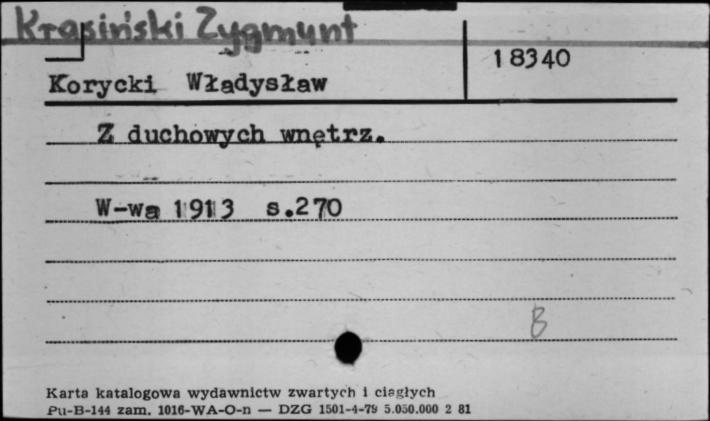 Krasiński Zygmunt
18340
Korycki Władysław
Z duchowych wnętrz.
W-wa 1913 s.270
B
Karta katalogowa wydawnictw zwartych i ciągłych
Pu-B-144 zam. 1016-WA-O-n — DZG 1501-4-79 5.050.000 2 81